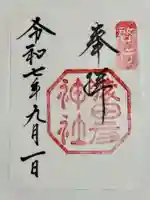 奉拝
神社
令和七年九月一日